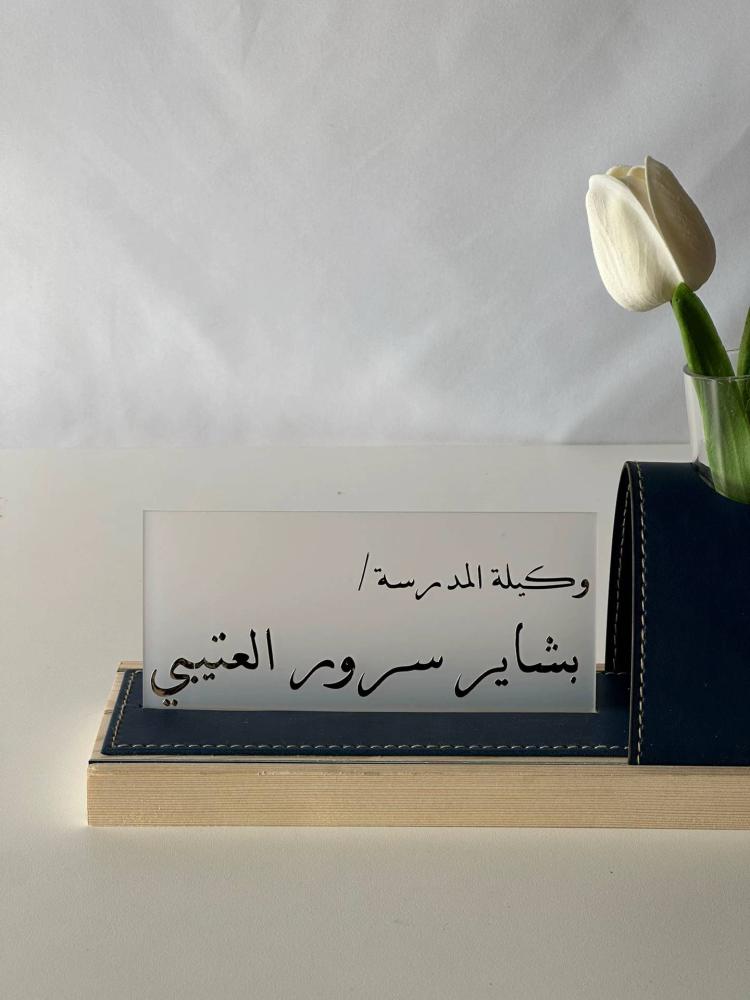 وكيلة المدرسة/
بشاير سرور العتيبي